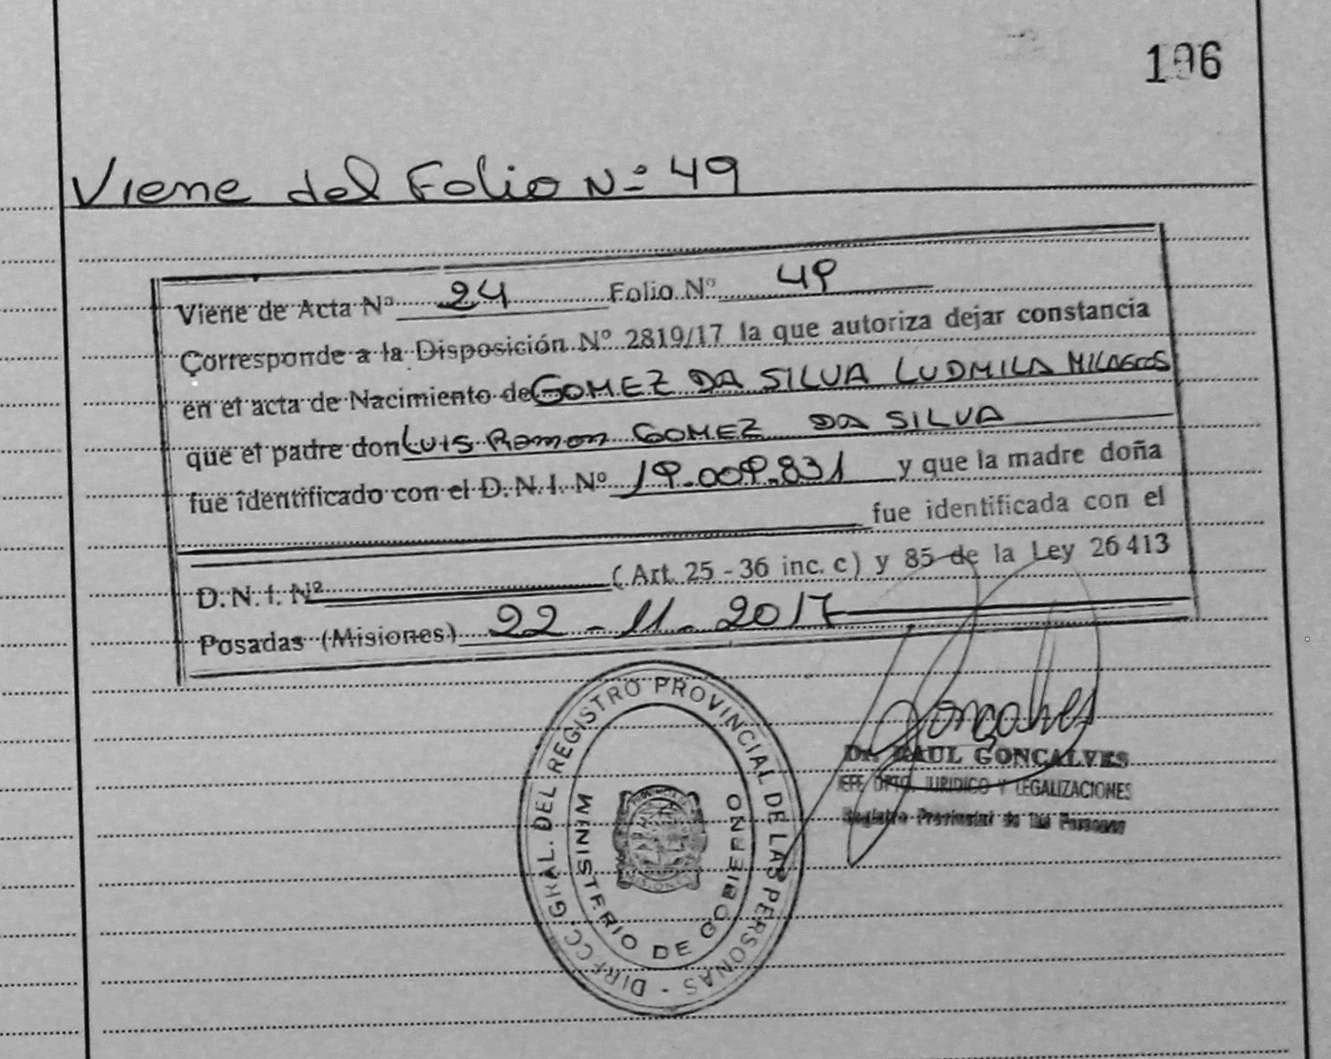 196
Viene del Folio Nº 49
Viene de Acta Nº 24 Folio Nº 49
Corresponde a la Disposición Nº 2819/17 la que autoriza dejar constancia
en el acta de Nacimiento de GOMEZ DA SILVA LUDMILA MILAGROS
que el padre don LUIS Ramon GOMEZ DA SILVA
fue identificado con el D.N.I. Nº 19.009.831 y que la madre doña
fue identificada con el
D.N.I. Nº (Art. 25 - 36 inc. c) y 85 de la Ley 26413
Posadas (Misiones) 22 - 11 - 2017
Gonçalves
Dr. RAUL GONÇALVES
JEFE DPTO. JURIDICO Y LEGALIZACIONES
Registro Provincial de las Personas
DIRECC. GRAL. DEL REGISTRO PROVINCIAL DE LAS PERSONAS -
MINISTERIO DE GOBIERNO
MISIONES